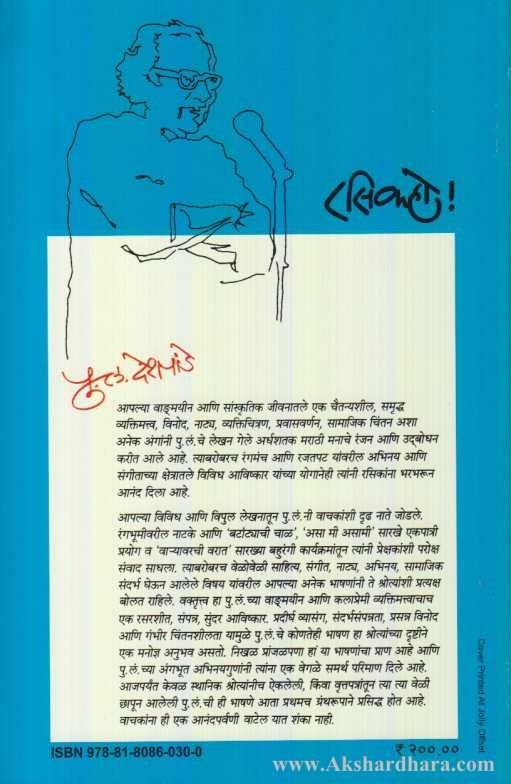 रसिकहो!
पु. ल. देशपांडे
आपल्या वाङ्मयीन आणि सांस्कृतिक जीवनातले एक चैतन्यशील, समृद्ध
व्यक्तिमत्त्व, विनोद, नाट्य, व्यक्तिचित्रण, प्रवासवर्णन, सामाजिक चिंतन अशा
अनेक अंगांनी पु.लं.चे लेखन गेले अर्धशतक मराठी मनाचे रंजन आणि उद्बोधन
करीत आले आहे. त्याबरोबरच रंगमंच आणि रजतपट यांवरील अभिनय आणि
संगीताच्या क्षेत्रातले विविध आविष्कार यांच्या योगानेही त्यांनी रसिकांना भरभरून
आनंद दिला आहे.
आपल्या विविध आणि विपुल लेखनातून पु.लं.नी वाचकांशी दृढ नाते जोडले.
रंगभूमीवरील नाटके आणि 'बटाट्याची चाळ', 'असा मी असामी' सारखे एकपात्री
प्रयोग व 'वाऱ्यावरची वरात' सारख्या बहुरंगी कार्यक्रमांतून त्यांनी प्रेक्षकांशी परोक्ष
संवाद साधला. त्याबरोबरच वेळोवेळी साहित्य, संगीत, नाट्य, अभिनय, सामाजिक
संदर्भ घेऊन आलेले विषय यांवरील आपल्या अनेक भाषणांनी ते श्रोत्यांशी प्रत्यक्ष
बोलत राहिले. वक्तृत्त्व हा पु.लं.च्या वाङ्मयीन आणि कलाप्रेमी व्यक्तिमत्त्वाचाच
एक रसरशीत, संपन्न, सुंदर आविष्कार. प्रदीर्घ व्यासंग, संदर्भसंपन्नता, प्रसन्न विनोद
आणि गंभीर चिंतनशीलता यामुळे पु.लं.चे कोणतेही भाषण हा श्रोत्यांच्या दृष्टीने
एक मनोज्ञ अनुभव असतो. निखळ प्रांजळपणा हां या भाषणांचा प्राण आहे आणि
पु.लं.च्या अंगभूत अभिनयगुणांनी त्यांना एक वेगळे समर्थ परिमाण दिले आहे.
आजपर्यंत केवळ स्थानिक श्रोत्यांनीच ऐकलेली, किंवा वृत्तपत्रांतून त्या त्या वेळी
छापून आलेली पु.लं.ची ही भाषणे आता प्रथमच ग्रंथरूपाने प्रसिद्ध होत आहे.
वाचकांना ही एक आनंदपर्वणी वाटेल यात शंका नाही.
Cover Printed At Jolly Offset
ISBN 978-81-8086-030-0
₹ २००.००
www.Akshardhara.com